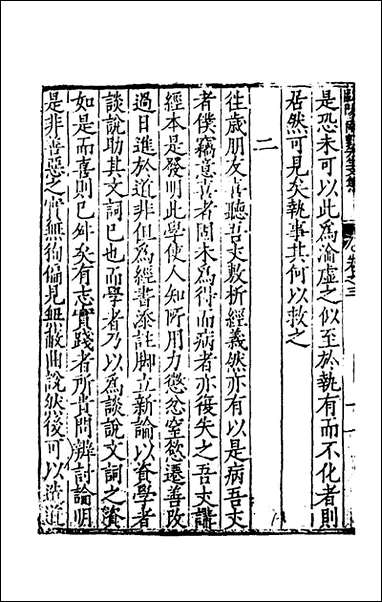 是恐未可以此為淪虛之似至於執有而不化者則
居然可見矣執事其何以救之
二
往歲朋友喜聽吾丈敷析經義然亦有以是病吾丈
者僕竊意喜者固未為得而病者亦復失之吾丈講
經本是發明此學使人知所用力懲忿窒慾遷善改
過日進於道非但為經書添註脚立新論以資學者
談說助其文詞已也而學者乃以為談說文詞之資
如是而喜則已舛矣有志實踐者所貴問辨討論明
是非善惡之實無徇偏見無蔽曲說然後可以造道